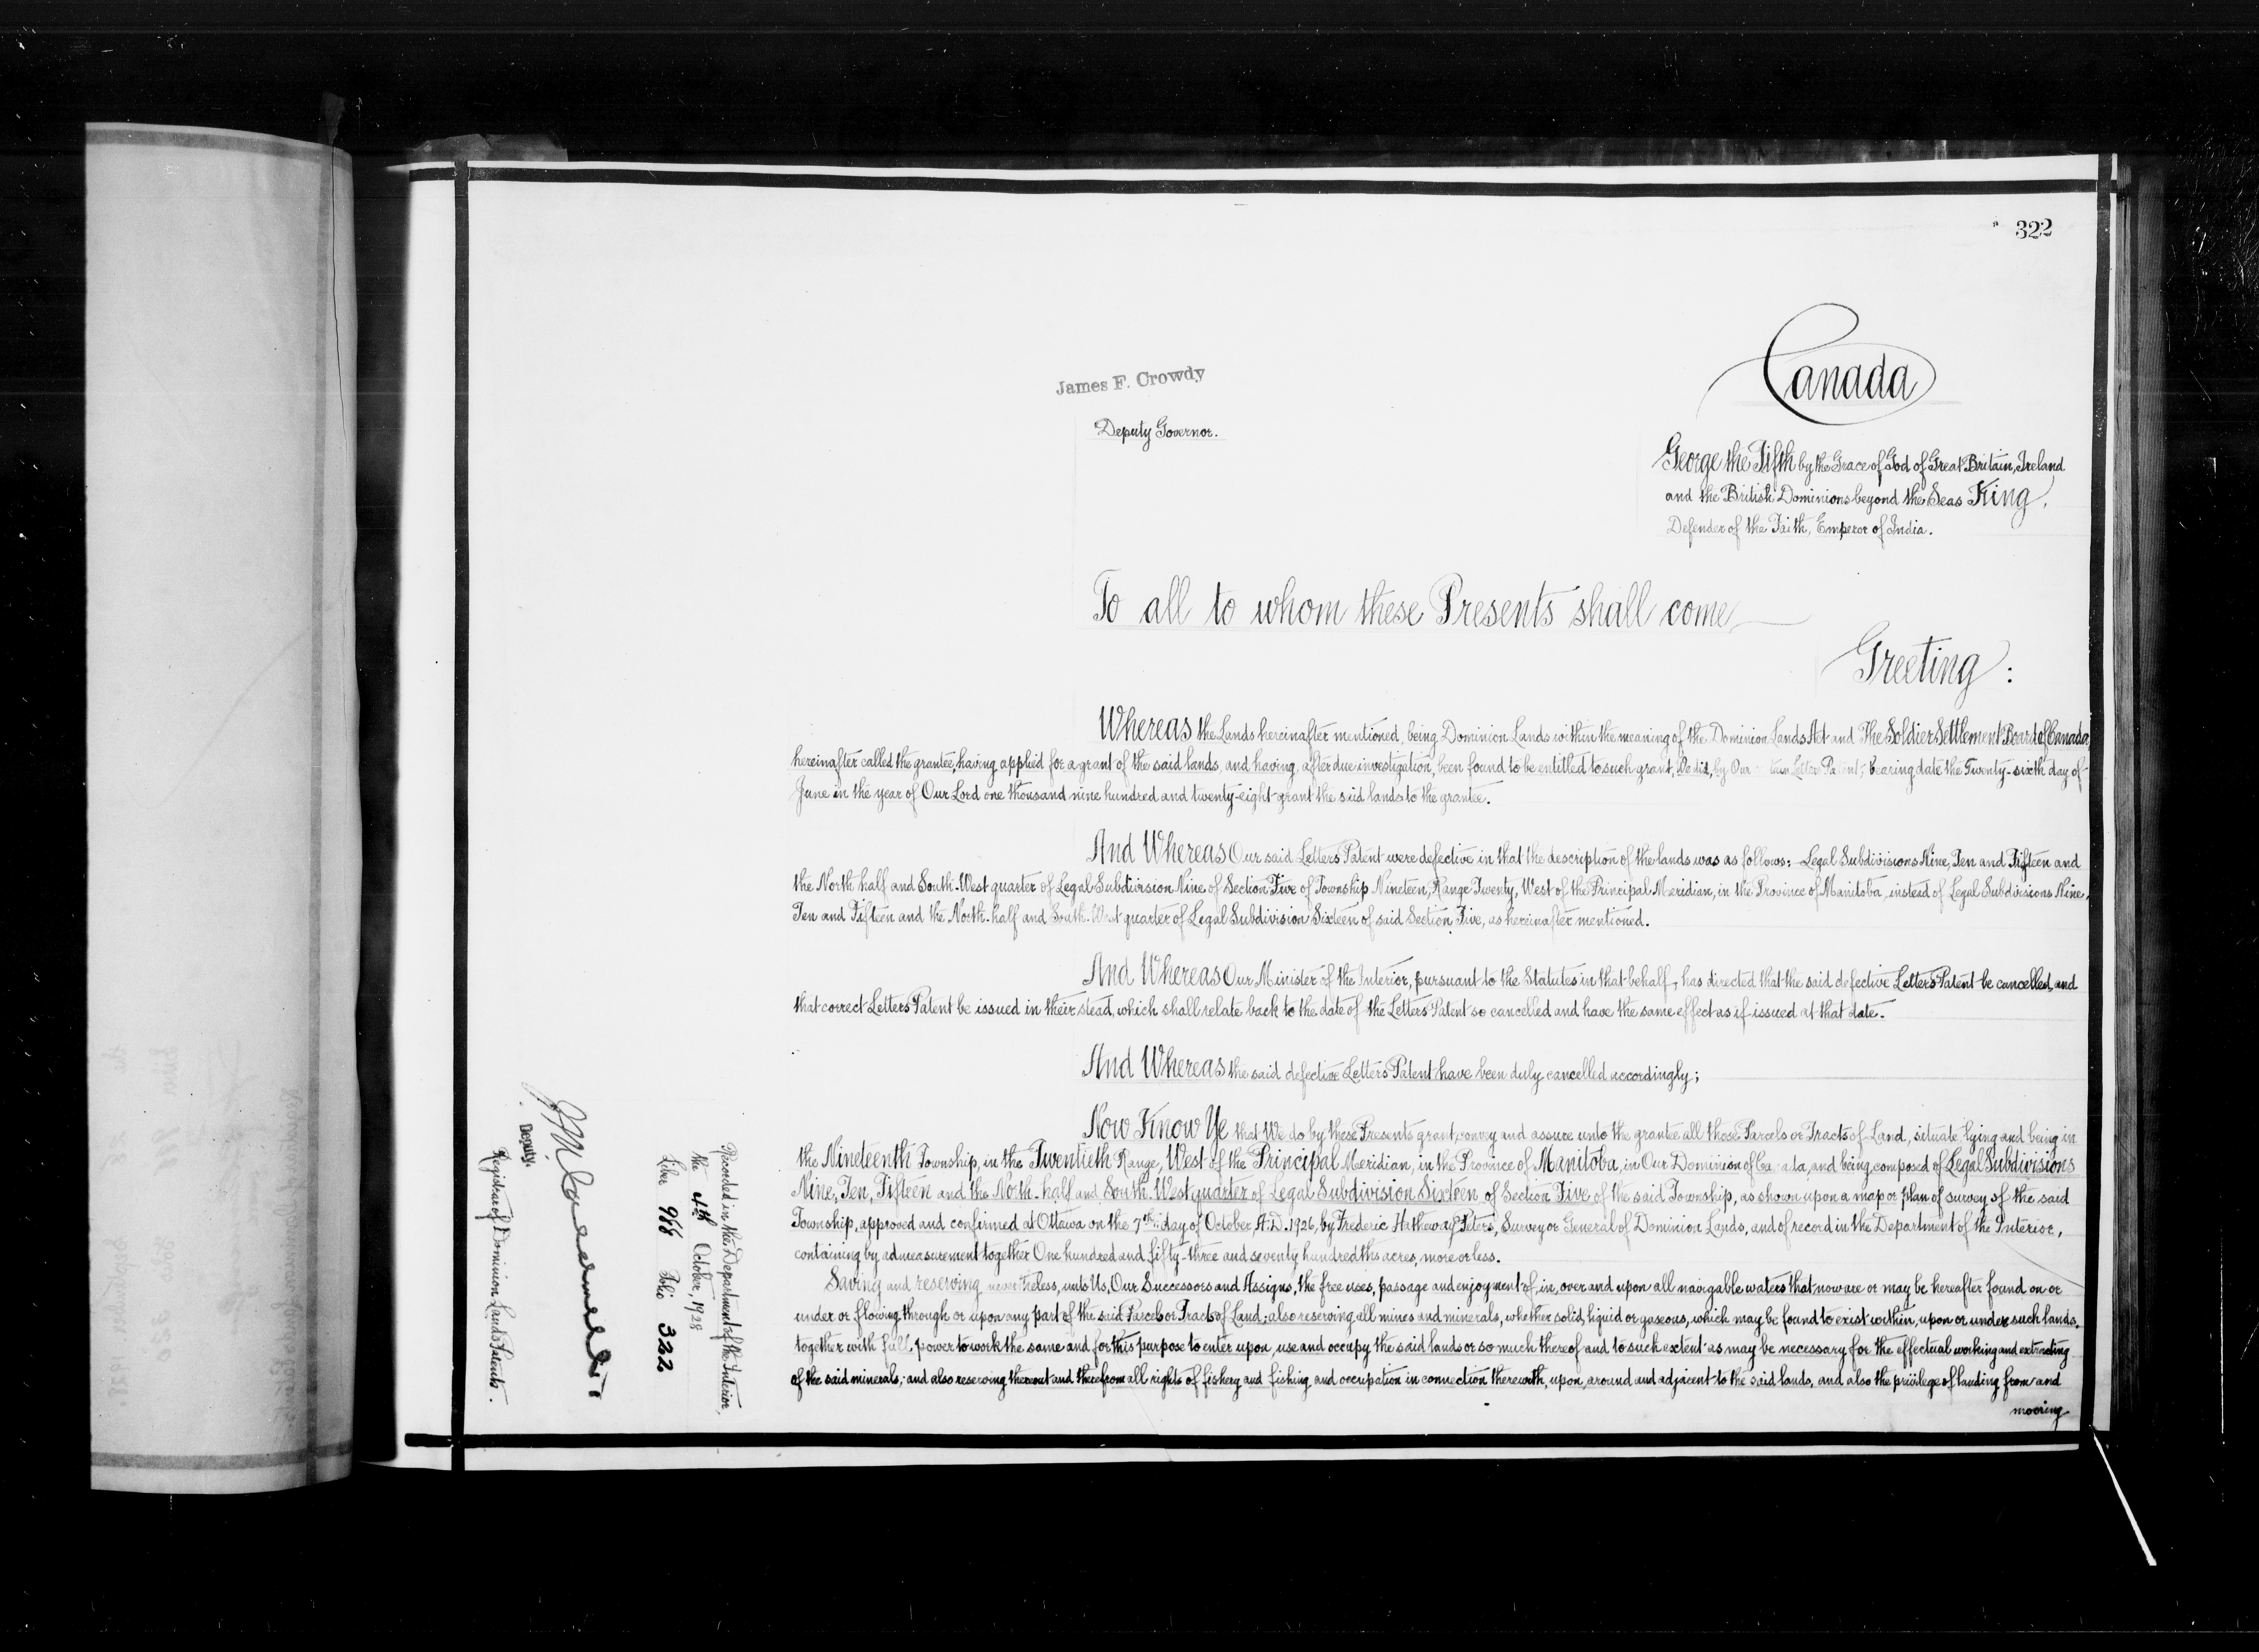 322
Canada
James F. Crowdy
Deputy Governor.
George the Fifth by the Grace of God of Great Britain, Ireland
and the British Dominions beyond the Seas King,
Defender of the Faith, Emperor of India.
To all to whom these Presents shall come
Greeting:
Whereas the Lands hereinafter mentioned, being Dominion Lands within the meaning of the Dominion Lands Act and The Soldier Settlement Board of Canada
hereinafter called the grantee, having applied for a grant of the said lands, and having, after due investigation, been found to be entitled to such grant, We did, by Our Letters Patent, bearing date the Twenty-sixth day of
June in the year of Our Lord one thousand nine hundred and twenty-eight grant the said lands to the grantee.
And Whereas Our said Letters Patent were defective in that the description of the lands was as follows:- Legal Subdivisions Nine, Ten and Fifteen and
the North half and South-West quarter of Legal Subdivision Nine of Section Five of Township Nineteen, Range Twenty, West of the Principal Meridian, in the Province of Manitoba, instead of Legal Subdivisions Nine,
Ten and Fifteen and the North-half and South-West quarter of Legal Subdivision Sixteen of said Section Five, as hereinafter mentioned.
And Whereas Our Minister of the Interior, pursuant to the Statutes in that behalf, has directed that the said defective Letters Patent be cancelled, and
that correct Letters Patent be issued in their stead, which shall relate back to the date of the Letters Patent so cancelled and have the same effect as if issued at that date.
And Whereas the said defective Letters Patent have been duly cancelled accordingly;
Now Know Ye that We do by these Presents grant, convey and assure unto the grantee all those Parcels or Tracts of Land, situate, lying and being in
the Nineteenth Township, in the Twentieth Range, West of the Principal Meridian, in the Province of Manitoba, in Our Dominion of Canada, and being composed of Legal Subdivisions
Nine, Ten, Fifteen and the North-half and South-West quarter of Legal Subdivision Sixteen of Section Five of the said Township, as shown upon a map or plan of survey of the said
Township, approved and confirmed at Ottawa on the 7th day of October, A.D. 1926, by Frederic Hatheway Peters, Surveyor General of Dominion Lands, and of record in the Department of the Interior,
containing by admeasurement together One hundred and fifty-three and seventy hundredths acres, more or less.
Saving and reserving nevertheless, unto Us, Our Successors and Assigns, the free uses, passage and enjoyment of, in, over and upon all navigable waters that now are or may be hereafter found on or
under or flowing through or upon any part of the said Parcels or Tracts of Land; also reserving all mines and minerals, whether solid, liquid or gaseous, which may be found to exist within, upon or under such lands,
together with full power to work the same and for this purpose to enter upon, use and occupy the said lands or so much thereof and to such extent as may be necessary for the effectual working and extracting
of the said minerals; and also reserving thereout and therefrom all rights of fishery and fishing and occupation in connection therewith, upon, around and adjacent to the said lands, and also the privilege of landing from and
mooring
Recorded in the Department of the Interior,
the 4th October, 1928
Liber 966 Folio 322
Deputy.
Registrar of Dominion Lands Patents.